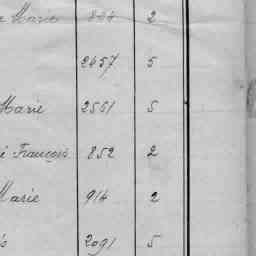 Marie 844 2
2457 5
Marie 2561 5
François 852 2
Marie 914 2
2091 5